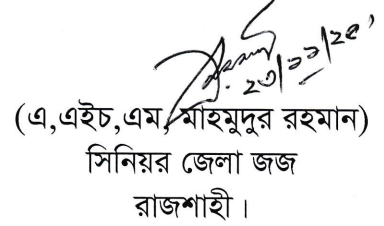 ২৩/১১/২৫
(এ,এইচ,এম, মাহমুদুর রহমান)
সিনিয়র জেলা জজ
রাজশাহী।